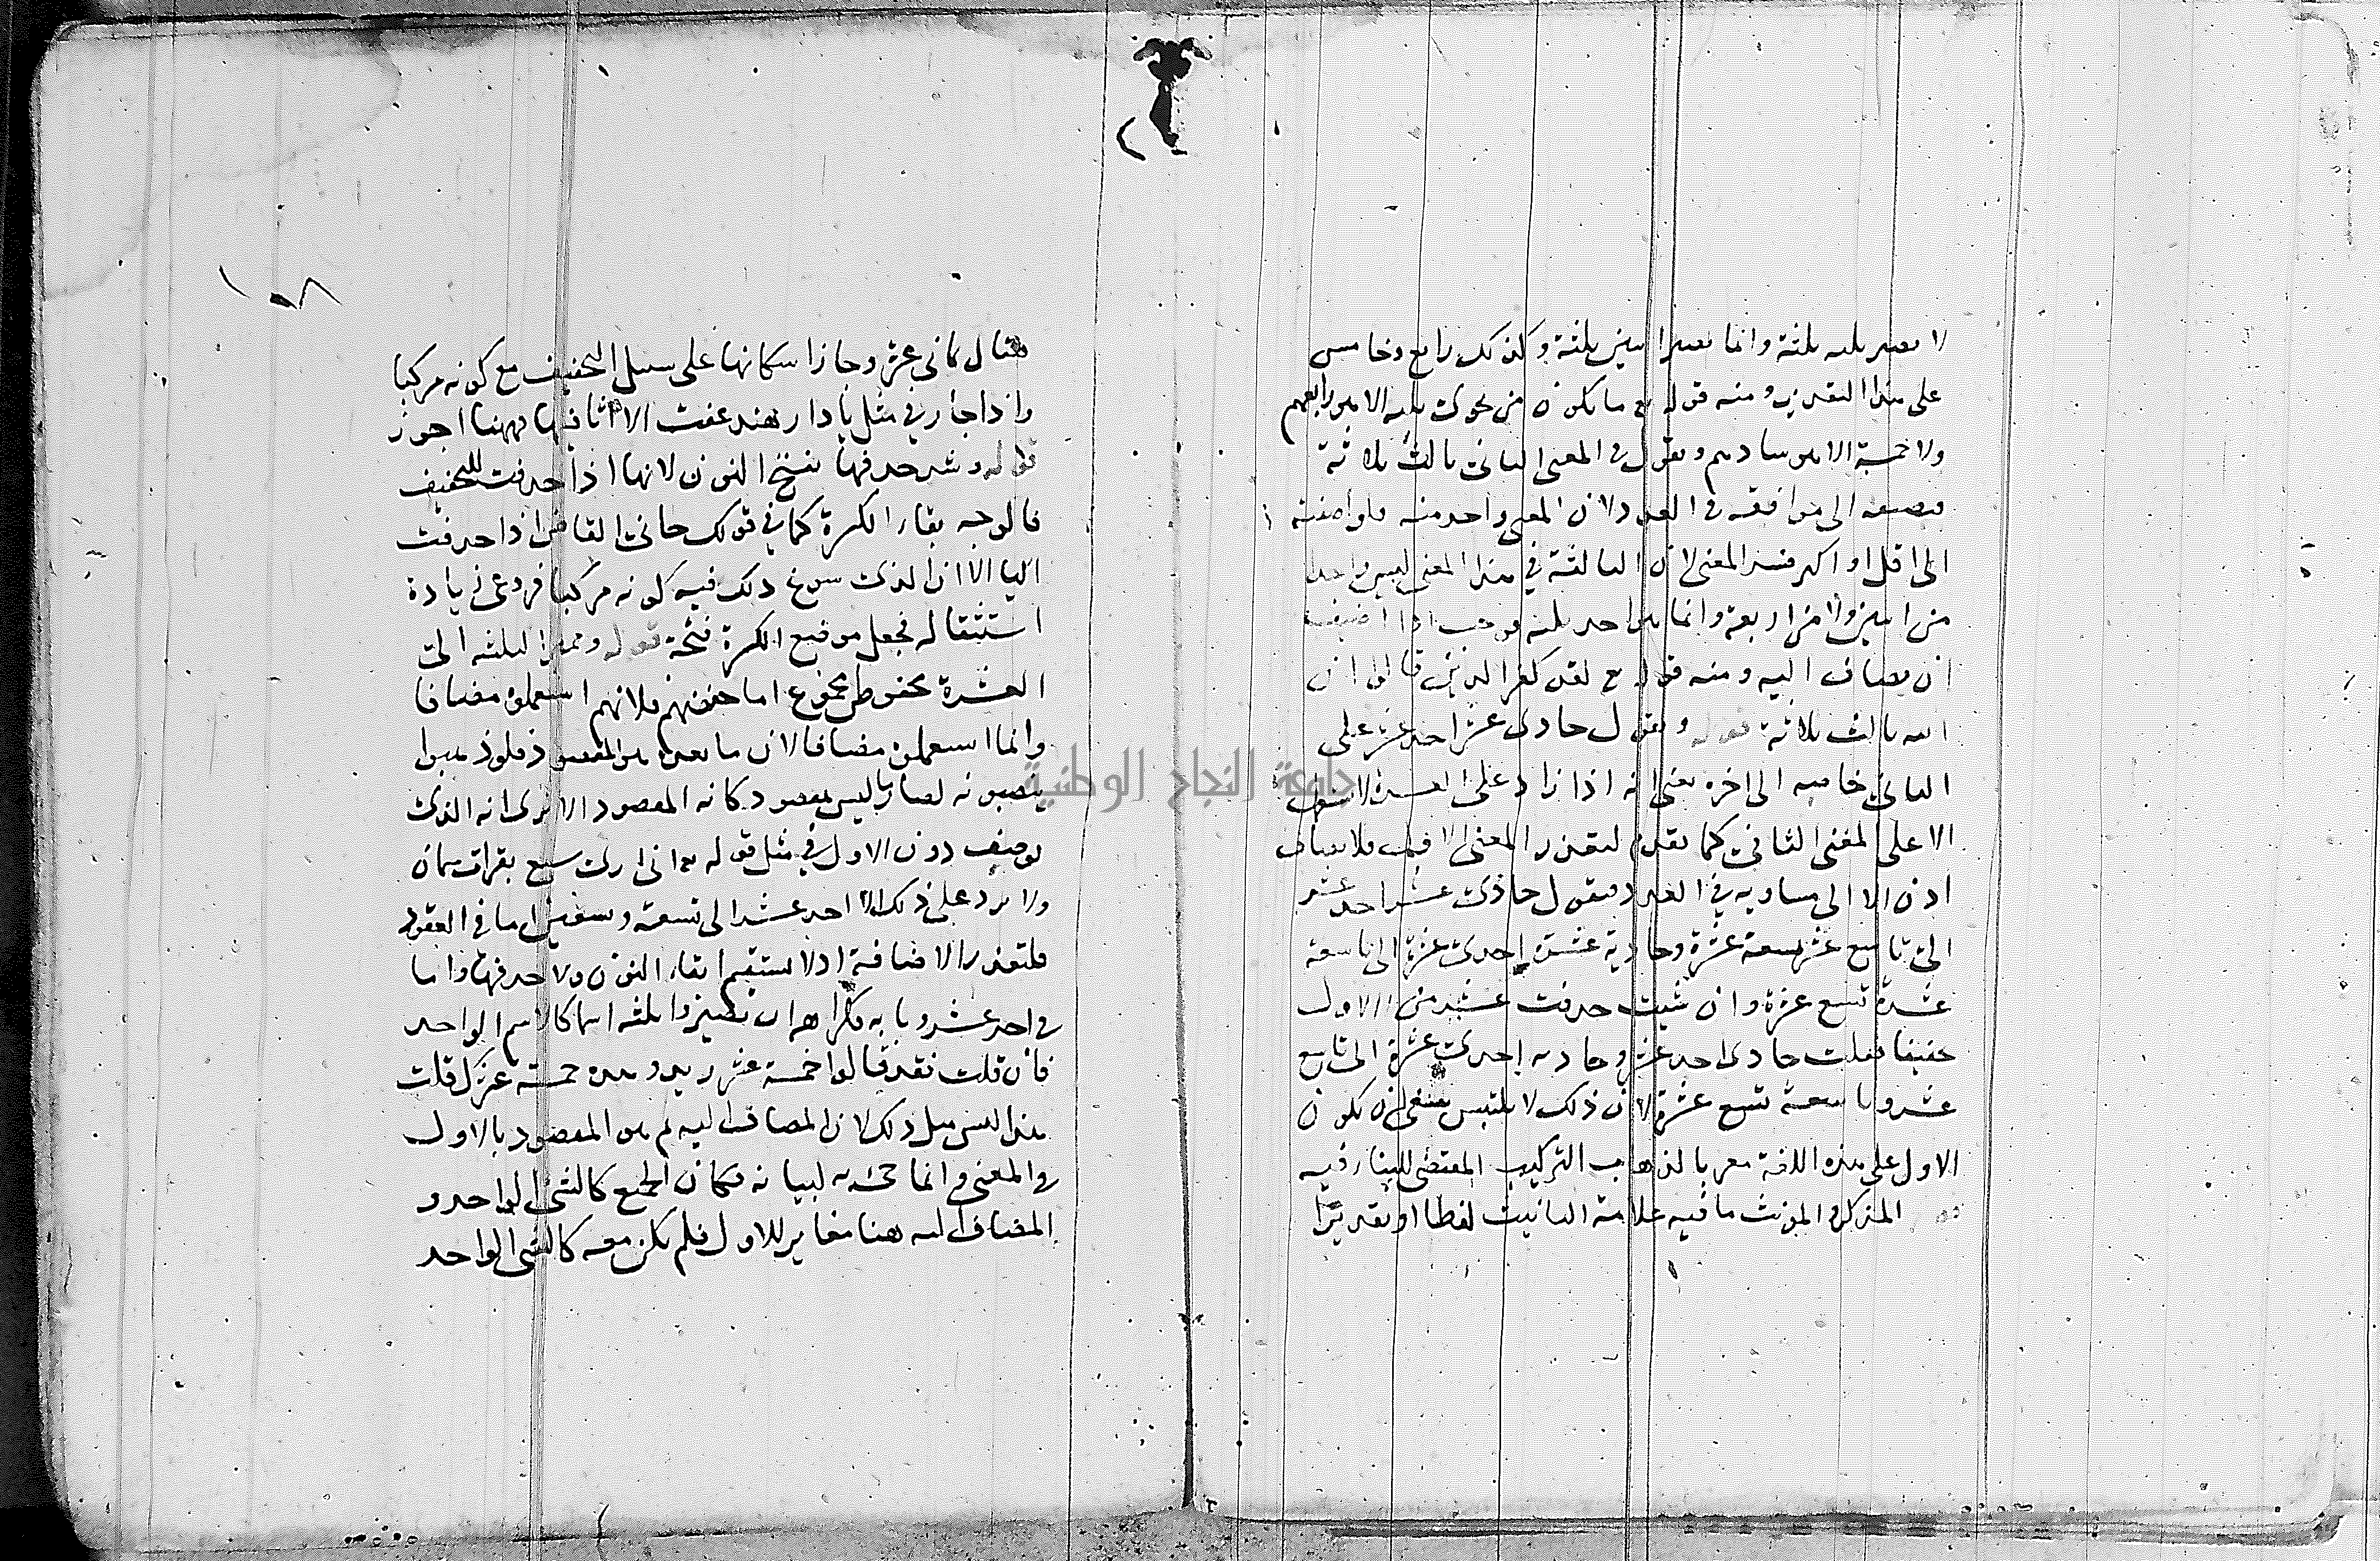 لا يصير ثلثه ثلثة وانما يصير اثنين ثلثة وكذلك رابع وخامس
على هذا التقدير ومنه قوله تع ما يكون من نجوى ثلثه الا هو رابعهم
ولا خمسة الا هو سادسهم وتقول في المعنى الثاني ثالث ثلاثة
فتضيفه الى موافقه في العدد لان المعنى واحد منه فلو اضفته
الى اقل او اكثر فسد المعنى لان الثالثة في هذا المعنى ليس واحدا
من اثنين ولا من اربعة وانما هو احد ثلثه فوجب اذا اضيف
ان يضاف اليه ومنه قوله تع لقد كفر الذين قالوا ان
الله ثالث ثلاثة قوله وتقول حادى عشر احد عشر على
الثاني خاصه الى اخره يعنى انه اذا زاد على العشرة لا
الا على المعنى الثاني كما تقدم لتعذر المعنى الا فلا يضاف
اذن الا الى مساويه في العدد فتقول حادى عشر احد عشر
الى تاسع عشر تسعة عشرة وحادية عشرة احدى عشرة الى تاسعة
عشرة تسع عشرة وان شيت حذفت عشر من الاول
تخفيفا فقلت حادى احد عشر وحادية احدى عشرة الى تاسع
عشر وتاسعة تسع عشرة لان ذلك لا يلتبس ينبغى ان يكون
الاول على هذه اللغة معربا لذهاب التركيب المقتضى للبناء فيه
المذكر والمونث ما فيه علامة التانيث لفظا او تقديرا
جامعة النجاح الوطنية
١٠٨
فقال ثمانى عشر وجاز اسكانها على سبيل التخفيف مع كونه مركبا
واذا جاز في مثل يا دار هند عفت الا اثافيها فههنا اجوز
قوله وشذ حذفها بفتح النون لانها اذا حذفت للتخفيف
فالوجه بقاء الكسرة كما في قولك جانى القاض اذا حذفت
اليا الا ان الذى سوغ ذلك فيه كونه مركبا فروعى زيادة
استثقاله فجعل موضع الكسرة فتحة قوله ومميز الثلثه الى
العشرة مخفوض مجموع اما خفضهم فلانهم استعملوه مضافا
وانما استعملوه مضافا لان ما بعده هو المقصود فلو ذهبوا
ينصبونه لصار ما ليس بمقصود كانه المقصود الا ترى انه الذى
يوصف دون الاول في مثل قوله تع انى ارى سبع بقرات سمان
ولا يرد على ذلك احد عشر الى تسعة وتسعين اما في العقود
فلتعذر الاضافة اذ لا يستقيم ابقاء النون ولا حذفها واما
في احد عشر وبابه فكراهة ان يصيروا ثلثه اسما كالاسم الواحد
فان قلت فقد قالوا خمسة عشر زيد وهذه خمسة عشرك قلت
هذا ليس مثل ذلك لان المضاف اليه ثم هو المقصود بالاول
في المعنى وانما جئ به لبيانه فكان الجميع كالشئ الواحد و
المضاف اليه هنا مغاير للاول فلم يكن معه كالشئ الواحد